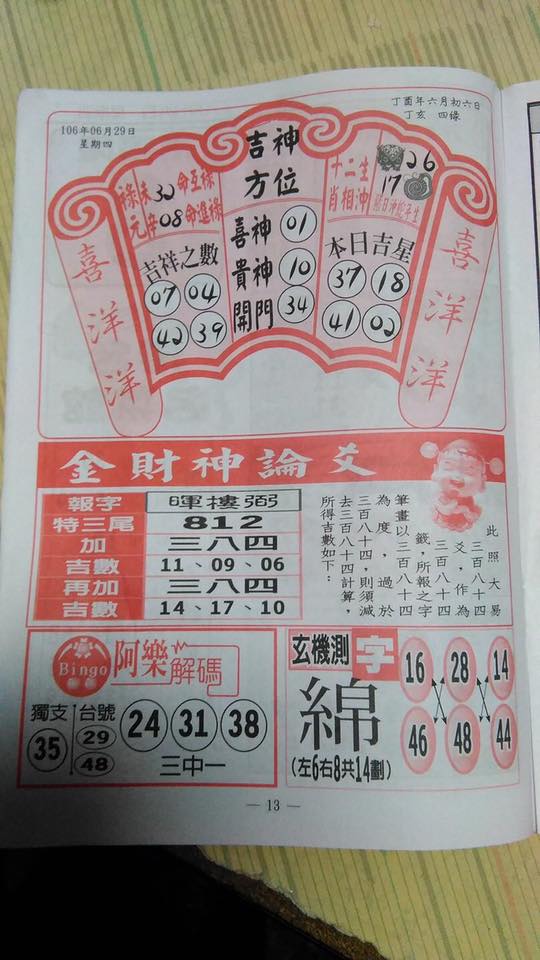 丁酉年六月初六日
丁亥 四綠
106年06月29日
星期四
喜洋洋
祿未32命互祿
元辛08命進祿
吉祥之數
07 04
42 39
吉神
方位
喜神 01
貴神 10
開門 34
十二生
肖相沖
26
17
本日吉星
37 18
41 02
喜洋洋
金財神論爻
報字 暉摟弼
特三尾 812
加 三八四
吉數 11、09、06
再加 三八四
吉數 14、17、10
此照大易
三百八十四
爻，作為
三百八十四
籤，所報之字
筆畫以三百八十四
為度，過於
三百八十四，則須減
去三百八十四計算，
所得吉數如下：
Bingo
阿樂解碼
獨支 35
台號 29 48
24 31 38
三中一
玄機測字
綿
(左6右8共14劃)
16 28 14
46 48 44
— 13 —